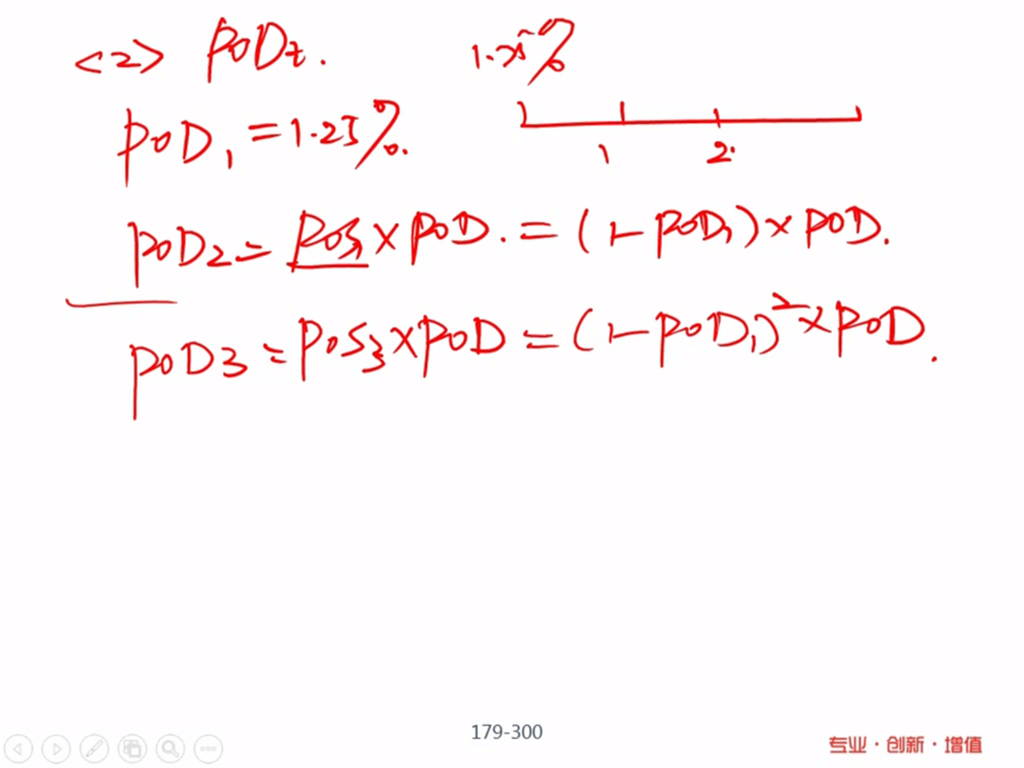 <2> PODt.
1.25%
POD1 = 1.25%.
1 2.
POD2 = POS1 × POD. = (1-POD1) × POD.
POD3 = POS3 × POD = (1-POD1)² × POD.
179-300
专业·创新·增值